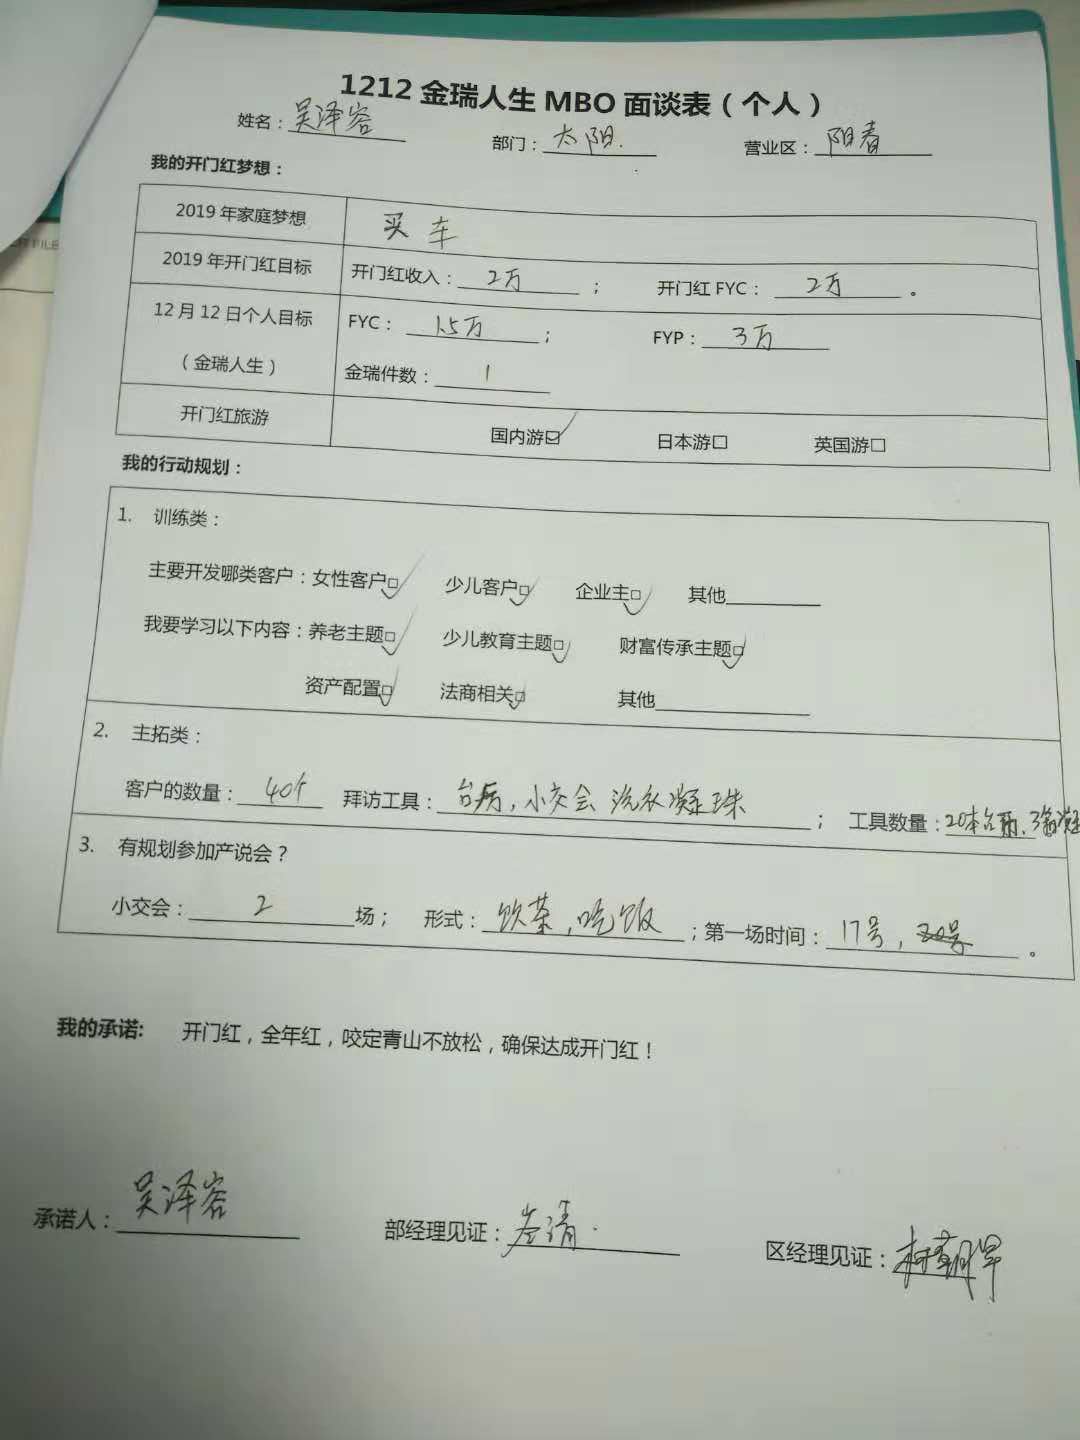 1212金瑞人生MBO面谈表（个人）
姓名：吴泽容 部门：太阳 营业区：阳春
我的开门红梦想：
2019年家庭梦想 买车
2019年开门红目标 开门红收入：2万； 开门红FYC：2万。
12月12日个人目标 FYC：1.5万； FYP：3万
（金瑞人生） 金瑞件数：1
开门红旅游 国内游☑ 日本游□ 英国游□
我的行动规划：
1. 训练类：
主要开发哪类客户：女性客户☑ 少儿客户☑ 企业主☑ 其他
我要学习以下内容：养老主题☑ 少儿教育主题☑ 财富传承主题☑
资产配置☑ 法商相关☑ 其他
2. 主拓类：
客户的数量：40个 拜访工具：台历，小交会 洗衣凝珠； 工具数量：20本台历，
3. 有规划参加产说会？
小交会：2场； 形式：饮茶，吃饭；第一场时间：17号，。
我的承诺： 开门红，全年红，咬定青山不放松，确保达成开门红！
承诺人：吴泽容 部经理见证： 区经理见证：